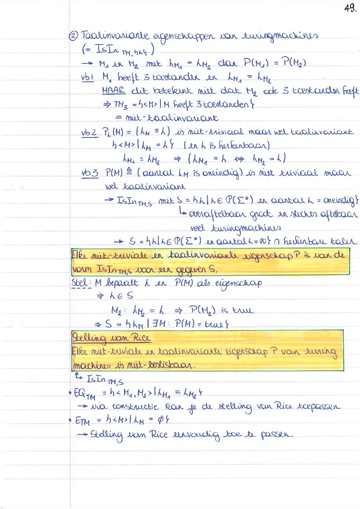 49.
② Taalinvariante eigenschappen van turingmachines
(= IsIn TM,S)
→ M₁ en M₂ met L_M₁ = L_M₂ dan P(M₁) = P(M₂)
vb1 M₁ heeft 3 toestanden en L_M₁ = L_M₂
MAAR dit betekent niet dat M₂ ook 3 toestanden heeft
⇒ TM₃ = {<M> | M heeft 3 toestanden}
= niet-taalinvariant
vb2 P_L(M) = (L_M = L) is niet-triviaal maar wel taalinvariant
{<M> | L_M = L} (en L is herkenbaar)
L_M₁ = L_M₂ ⇒ (L_M₁ = L ⇔ L_M₂ = L)
vb3 P(M) ≜ (aantal L_M is oneindig) is niet triviaal maar
wel taalinvariant
→ IsIn TM,S met S = {L | L ∈ P(Σ*) en aantal L = oneindig}
↳ overaftelbaar groot en slechts aftelbaar
veel turingmachines
→ S = {L | L ∈ P(Σ*) en aantal L = ∞} ∩ herkenbare talen
Elke niet-triviale en taalinvariante eigenschap P is van de
vorm IsIn TM,S voor een gegeven S.
Stel: M bepaalt L en P(M) als eigenschap
⇒ L ∈ S
M₂: L_M₂ = L ⇒ P(M₂) is true
⇒ S = {L_M | ∃M: P(M) = true}
Stelling van Rice
Elke niet-triviale en taalinvariante eigenschap P van turing
machines is niet-beslisbaar.
↳ IsIn TM,S
• EQ_TM = {<M₁, M₂> | L_M₁ = L_M₂}
→ via constructie kan je de stelling van Rice toepassen
• E_TM = {<M> | L_M = ∅}
→ Stelling van Rice eenvoudig toe te passen.